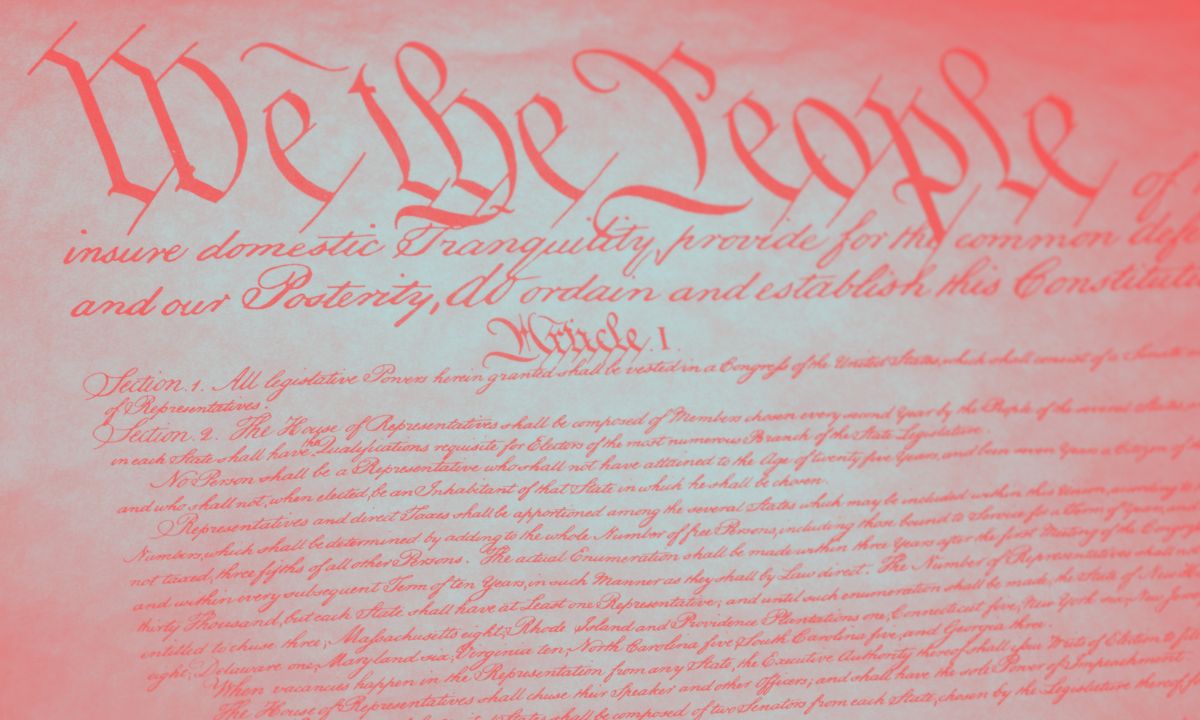 We the People of
insure domestic Tranquility, provide for the common defe
and our Posterity, do ordain and establish this Constituti
Article. I.
Section. 1. All legislative Powers herein granted shall be vested in a Congress of the United States, which shall consist of a Senate
of Representatives.
Section. 2. The House of Representatives shall be composed of Members chosen every second Year by the People of the several States,
in each State shall have the Qualifications requisite for Electors of the most numerous Branch of the State Legislature.
No Person shall be a Representative who shall not have attained to the Age of twenty five Years, and been seven Years a Citizen of
and who shall not, when elected, be an Inhabitant of that State in which he shall be chosen.
Representatives and direct Taxes shall be apportioned among the several States which may be included within this Union, according to
Numbers, which shall be determined by adding to the whole Number of free Persons, including those bound to Service for a Term of Years, and
not taxed, three fifths of all other Persons. The actual Enumeration shall be made within three Years after the first Meeting of the Congre
and within every subsequent Term of ten Years, in such Manner as they shall by Law direct. The Number of Representatives shall not
thirty Thousand, but each State shall have at Least one Representative; and until such enumeration shall be made, the State of New H
entitled to chuse three, Massachusetts eight, Rhode Island and Providence Plantations one, Connecticut five, New York six, New Jers
eight, Delaware one, Maryland six, Virginia ten, North Carolina five, South Carolina five, and Georgia three.
When vacancies happen in the Representation from any State, the Executive Authority thereof shall issue Writs of Election to fi
The House of Representatives shall chuse their Speaker and other Officers; and shall have the sole Power of Impeachment.
States shall be composed of two Senators from each State, chosen by the Legislature thereof, f